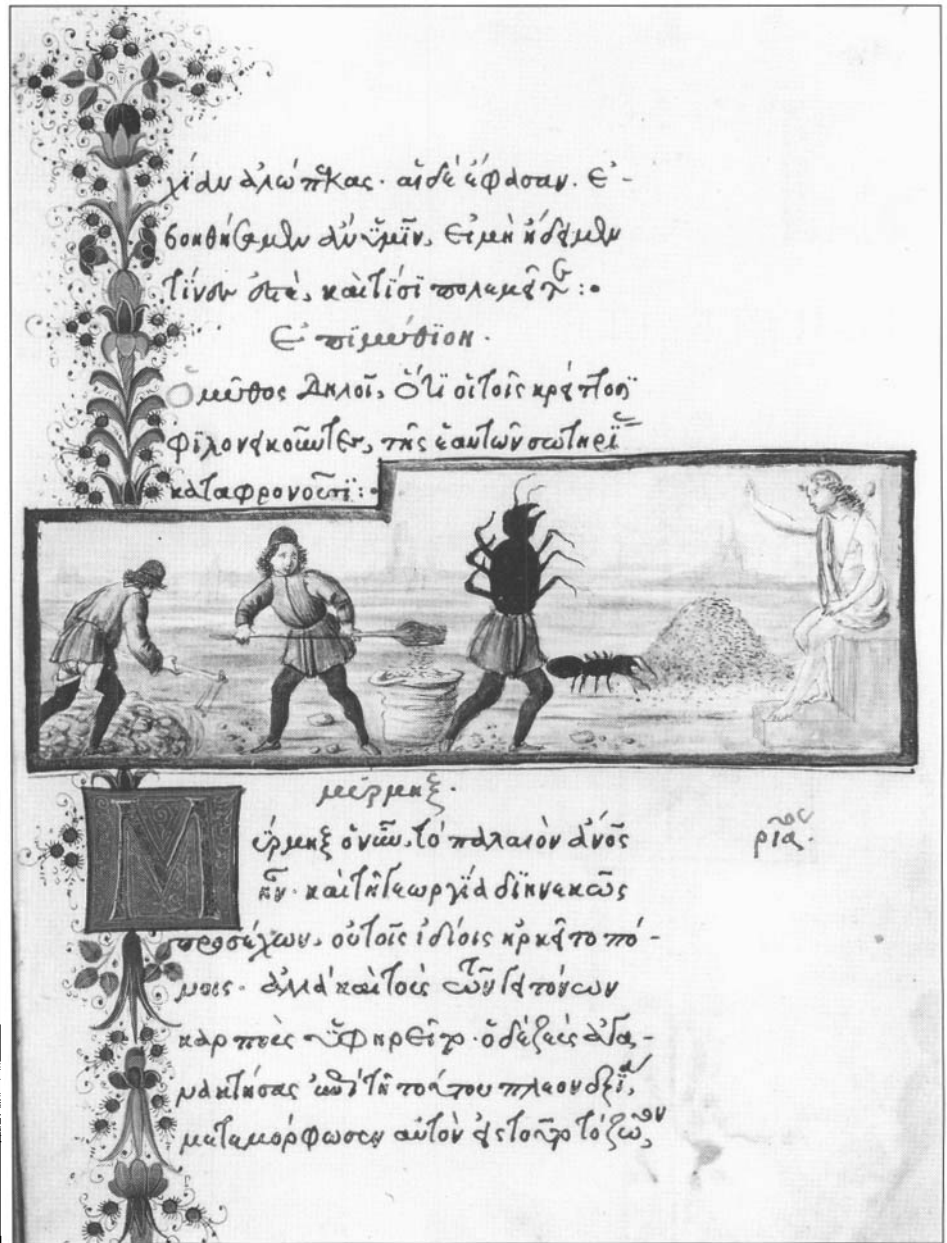 χίαν ἀλώπεκας. αἱ δὲ ἔφασαν. Ἐ-
βοηθήσαμεν ἂν ὑμῖν, εἰ μὴ ᾔδειμεν
τίνες ἐστὲ, καὶ τίσι πολεμεῖτε:·
Ἐπιμύθιον.
Ὁ μῦθος δηλοῖ, ὅτι οἱ τοῖς κρείττοσι
φιλονεικοῦντες, τῆς ἑαυτῶν σωτηρί
καταφρονοῦσι:·
μύρμηξ.
Μύρμηξ ὁ νῦν, τὸ παλαιὸν ἄνος
ρίας.
ἦν. καὶ τῇ γεωργίᾳ διηνεκῶς
προσέχων, οὐ τοῖς ἰδίοις ἠρκεῖτο πό-
νοις. ἀλλὰ καὶ τοὺς τῶν γειτόνων
καρποὺς ὑφῃρεῖτο. ὁ δὲ ζεὺς ἀγα-
νακτήσας ἐπὶ τῇ τούτου πλεονεξίᾳ,
μετεμόρφωσεν αὐτὸν εἰς τοῦτο τὸ ζῷον,